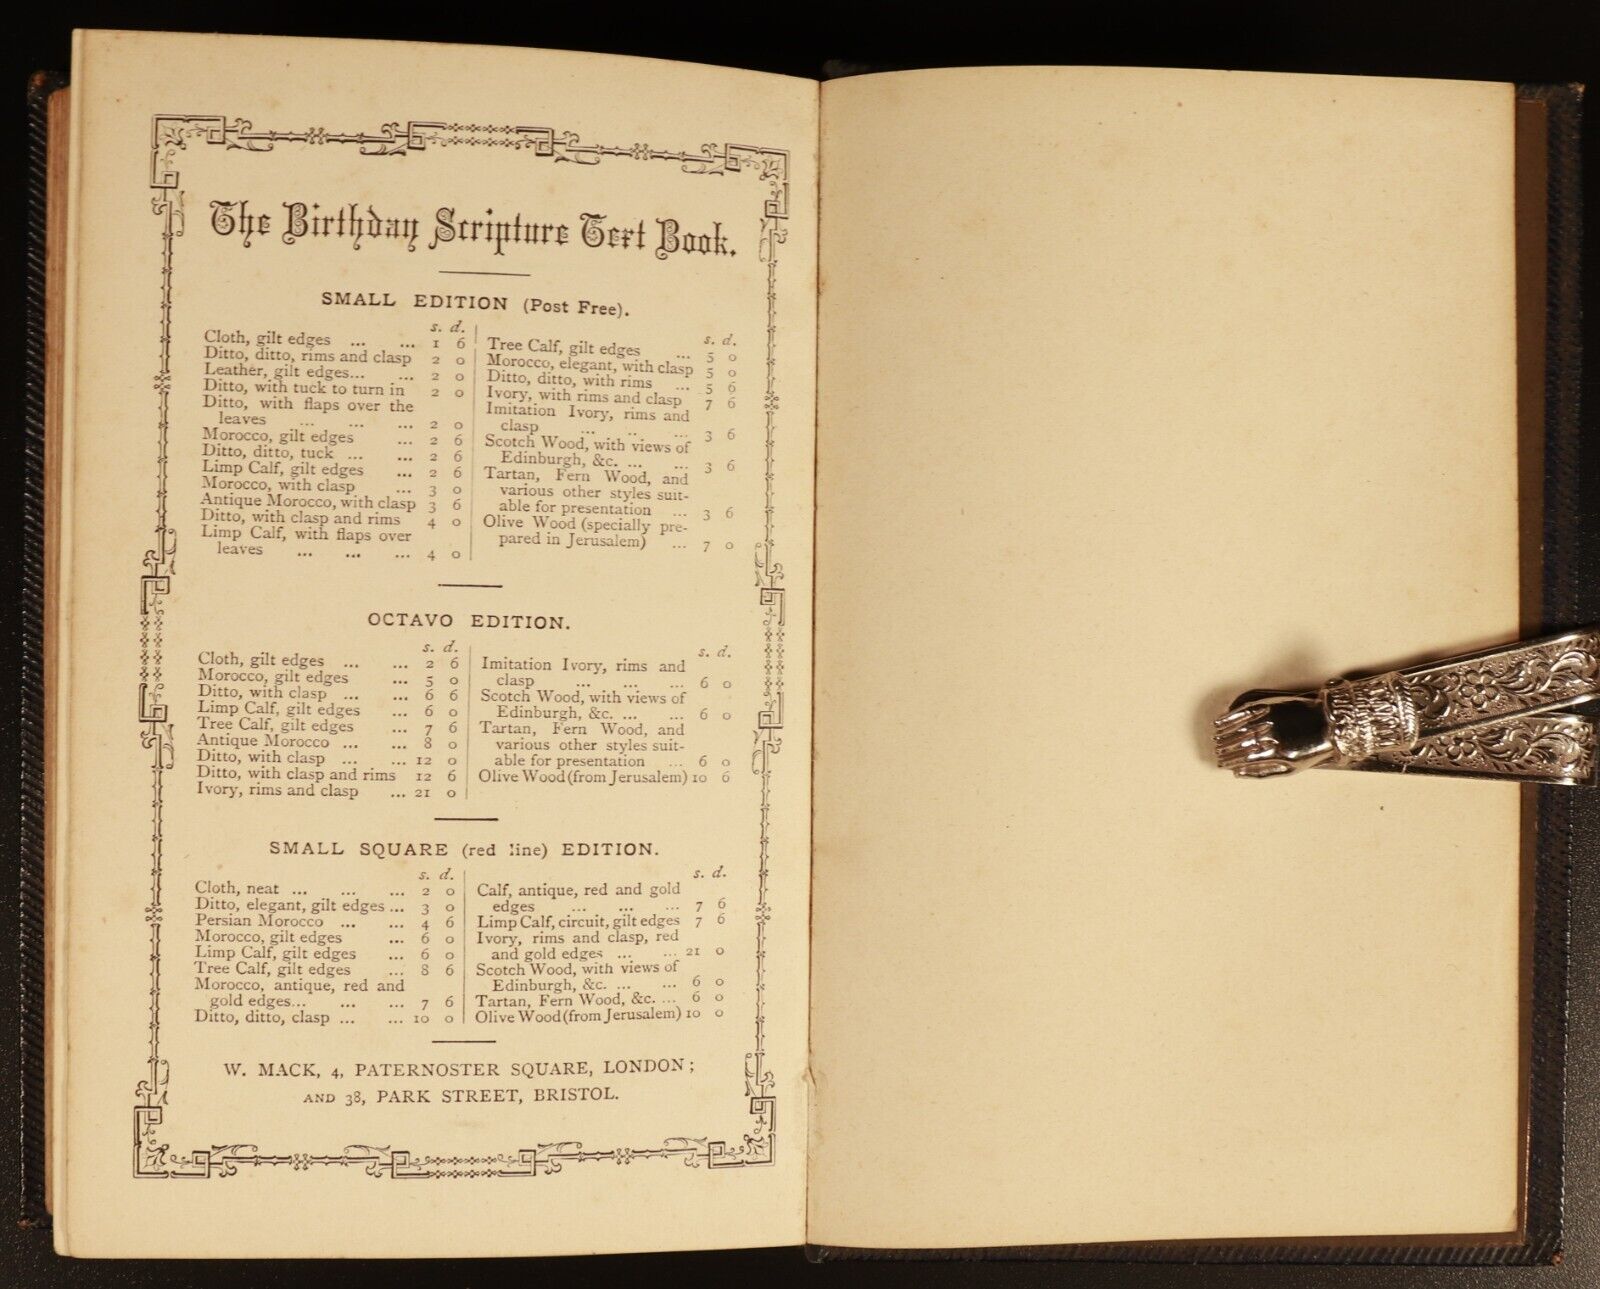 The Birthday Scripture Text Book.
SMALL EDITION (Post Free).
s. d.
Cloth, gilt edges ... ... 1 6
Ditto, ditto, rims and clasp 2 0
Leather, gilt edges... ... 2 0
Ditto, with tuck to turn in 2 0
Ditto, with flaps over the
leaves ... ... ... 2 0
Morocco, gilt edges ... 2 6
Ditto, ditto, tuck ... ... 2 6
Limp Calf, gilt edges ... 2 6
Morocco, with clasp ... 3 0
Antique Morocco, with clasp 3 6
Ditto, with clasp and rims 4 0
Limp Calf, with flaps over
leaves ... ... ... 4 0
s. d.
Tree Calf, gilt edges ... 5 0
Morocco, elegant, with clasp 5 0
Ditto, ditto, with rims ... 5 6
Ivory, with rims and clasp 7 6
Imitation Ivory, rims and
clasp ... .. ... 3 6
Scotch Wood, with views of
Edinburgh, &c. ... ... 3 6
Tartan, Fern Wood, and
various other styles suit-
able for presentation ... 3 6
Olive Wood (specially pre-
pared in Jerusalem) ... 7 0
OCTAVO EDITION.
s. d.
Cloth, gilt edges ... ... 2 6
Morocco, gilt edges ... 5 0
Ditto, with clasp ... ... 6 6
Limp Calf, gilt edges ... 6 0
Tree Calf, gilt edges ... 7 6
Antique Morocco ... ... 8 0
Ditto, with clasp ... ... 12 0
Ditto, with clasp and rims 12 6
Ivory, rims and clasp ... 21 0
s. d.
Imitation Ivory, rims and
clasp ... ... ... 6 0
Scotch Wood, with views of
Edinburgh, &c. ... ... 6 0
Tartan, Fern Wood, and
various other styles suit-
able for presentation ... 6 0
Olive Wood (from Jerusalem) 10 6
SMALL SQUARE (red line) EDITION.
s. d.
Cloth, neat ... ... ... 2 0
Ditto, elegant, gilt edges ... 3 0
Persian Morocco ... ... 4 6
Morocco, gilt edges ... 6 0
Limp Calf, gilt edges ... 6 0
Tree Calf, gilt edges ... 8 6
Morocco, antique, red and
gold edges... ... ... 7 6
Ditto, ditto, clasp ... ... 10 0
s. d.
Calf, antique, red and gold
edges ... ... ... 7 6
Limp Calf, circuit, gilt edges 7 6
Ivory, rims and clasp, red
and gold edges ... ... 21 0
Scotch Wood, with views of
Edinburgh, &c. ... ... 6 0
Tartan, Fern Wood, &c. ... 6 0
Olive Wood (from Jerusalem) 10 0
W. MACK, 4, PATERNOSTER SQUARE, LONDON;
AND 38, PARK STREET, BRISTOL.